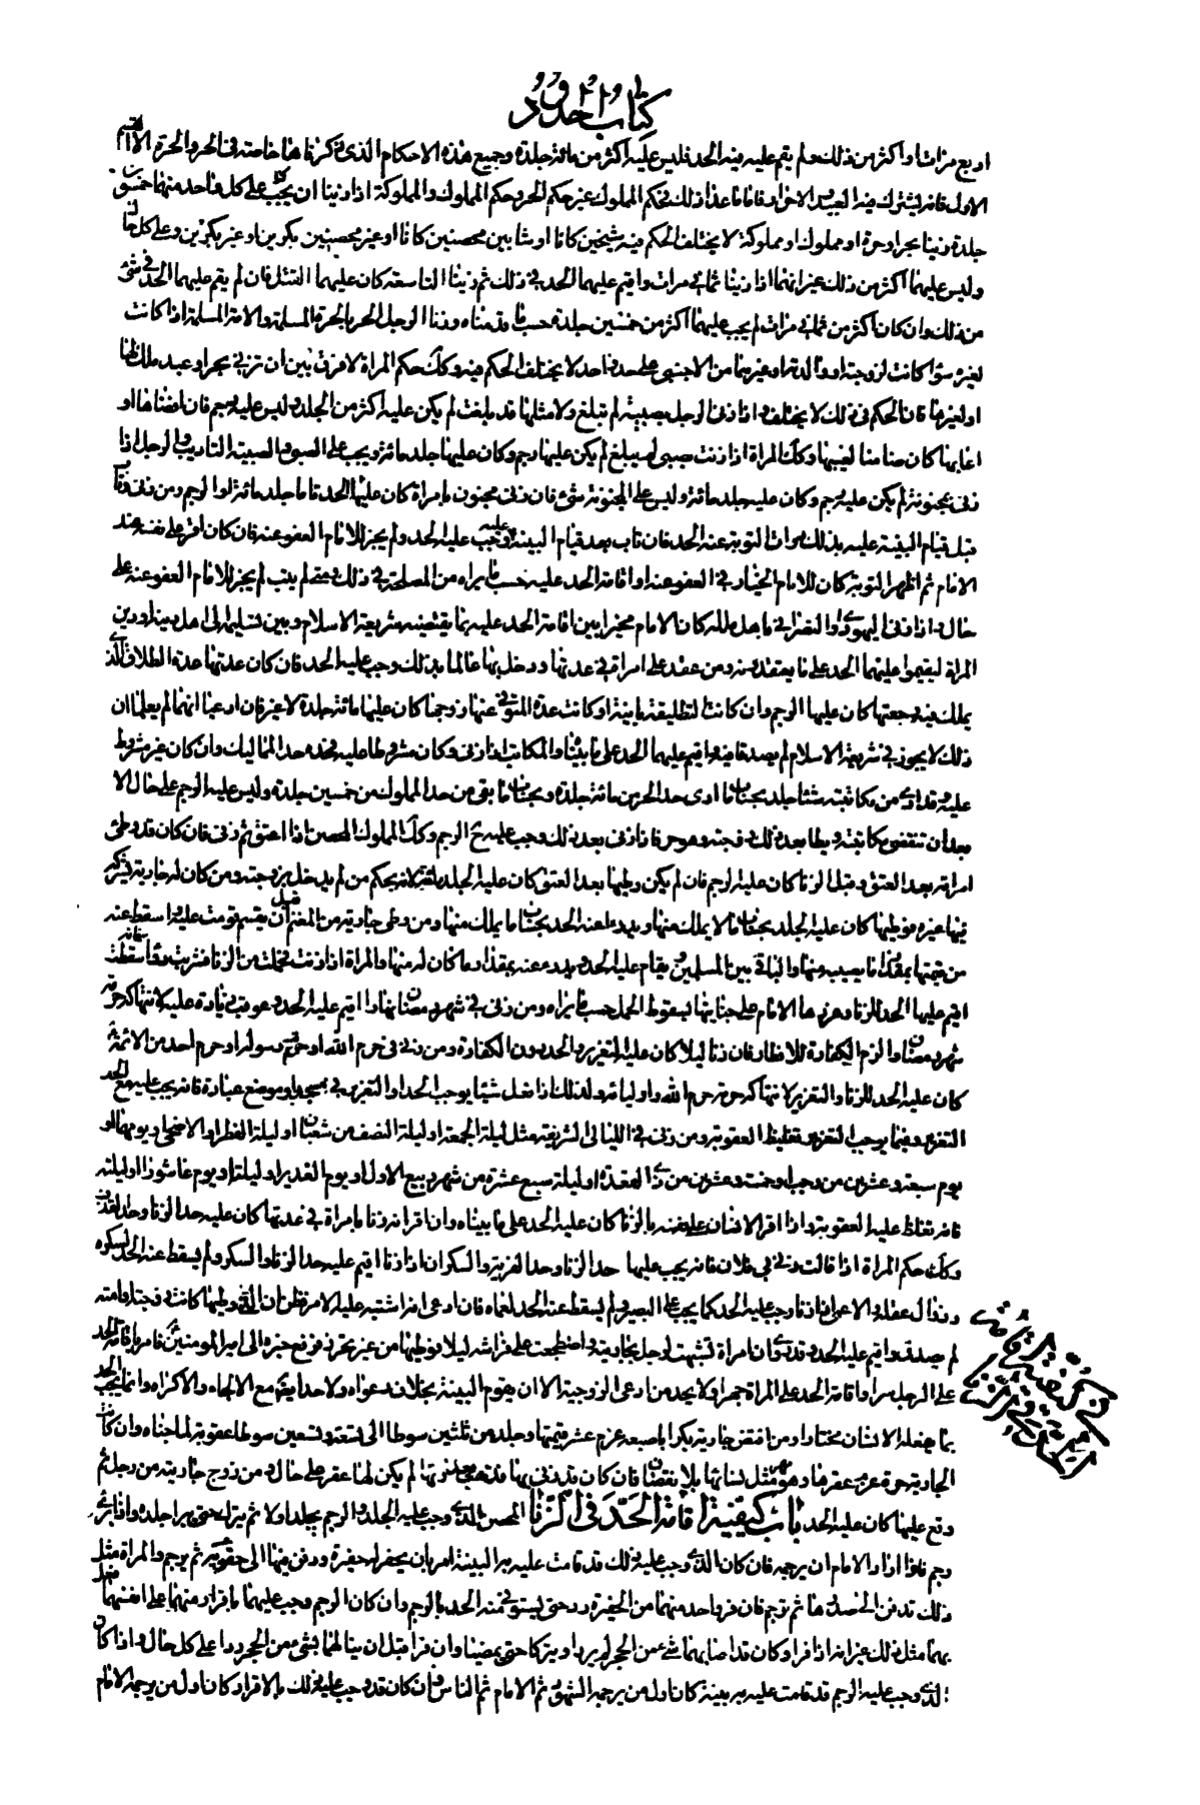 كتاب الحدود
اربع مرات او اكثر من ذلك ولم يقم عليه فيه الحد فليس عليه اكثر من مائة جلدة وجميع هذه الاحكام الذى ذكرناها خاصة فى الحر والحرة الا القسم
الاول فانه يشترك فيه العبيد الاحرار فاما ما عدا ذلك فحكم المملوك غير حكم الحر وحكم المملوك والمملوكة اذا زنيا ان يجب على كل واحد منهما خمسون
جلدة زنيا بحر او حرة او مملوك او مملوكة لا يختلف الحكم فيه شيخين كانا او شابين محصنين كانا او غير محصنين بكرين او غير بكرين وعلى كل حال
وليس عليهما اكثر من ذلك غير انهما اذا زنيا ثمانى مرات واقيم عليهما الحد فى ذلك ثم زنيا التاسعة كان عليهما القتل فان لم يقم عليهما الحد فى شئ
من ذلك وان كان اكثر من ثمانى مرات لم يجب عليهما اكثر من خمسين جلدة حسب ما قدمناه وزنا الرجل الحر بالحرة المسلمة والامة المسلمة اذا كانت
لغيره سوا كانت لزوجته او والدته او غيرهما من الاجنبى على حد واحد لا يختلف الحكم فيه وكذلك حكم المراة لا فرق بين ان تزنى بحر او عبد ملك لها
او لغيرها فان الحكم فى ذلك لا يختلف واذا زنى الرجل بصبية لم تبلغ ولا مثلها قد بلغت لم يكن عليه اكثر من الجلد وليس عليه رجم فان افضاها او
اعابها كان ضامنا لعيبها وكذلك المراة اذا زنت بصبى لم يبلغ لم يكن عليها رجم وكان عليها جلد مائة ويجب على الصبى والصبية التاديب والرجل اذا
زنى بمجنونة لم يكن عليه رجم وكان عليه جلد مائة وليس على المجنونة شئ فان زنى مجنون بامراة كان عليه الحد تاما جلد مائة او الرجم ومن زنى وتاب
قبل قيام البينة عليه بذلك درات التوبة عنه الحد فان تاب بعد قيام البينة عليه وجب عليه الحد ولم يجز للامام العفو عنه فان كان اقر على نفسه عند
الامام ثم اظهر التوبة كان للامام الخيار فى العفو عنه او اقامة الحد عليه حسب ما يراه من المصلحة فى ذلك ومتى لم يتب لم يجز للامام العفو عنه على
حال واذا زنى اليهودى او النصرانى باهل ملته كان الامام مخيرا بين اقامة الحد عليه بما يقتضيه شريعة الاسلام وبين تسليمه الى اهل دينه او دين
المراة ليقيموا عليهما الحد على ما يعتقدونه ومن عقد على امراة فى عدتها ودخل بها عالما بذلك وجب عليه الحد فان كان عدتها عدة الطلاق الذى
يملك فيه رجعتها كان عليها الرجم وان كانت التطليقة باينة او كانت عدة المتوفى عنها زوجها كان عليها مائة جلدة لا غير فان ادعيا انهما لم يعلما ان
ذلك لا يجوز فى شريعة الاسلام لم يصدقا فيه واقيم عليهما الحد على ما بيناه والمكاتب اذا زنى وكان مشروطا عليه فحده حد المماليك وان كان غير مشروط
عليه وقد ادى من مكاتبته شيئا جلد بحساب ما ادى حد الحر من مائة جلدة وبحساب ما بقى من حد المملوك من خمسين جلدة وليس عليه الرجم على حال الا
بعد ان تنقضى مكاتبته ويطا بعد ذلك زوجته وهو حر فاذا زنى بعد ذلك وجب عليه ح الرجم وكذلك المملوك المحصن اذا اعتق ثم زنى فان كان قد وطئ
امراته بعد العتق وقبل الزنا كان عليه الرجم فان لم يكن وطيها بعد العتق كان عليه الجلد مائة لانه بحكم من لم يدخل بزوجته ومن كان له جارية يشركه
فيها غيره فوطيها كان عليه الجلد بحساب ما لا يملك منها ويدرء عنه الحد بحساب ما يملك منها ومن وطى جارية من المغنم قبل ان يقسم قومت عليه واسقط عنه
من قيمتها بمقدار ما يصيبه منها والباقى بين المسلمين ويقام عليه الحد ويدرء عنه بمقدار ما كان له منها والمراة اذا زنت فحملت من الزنا فشربت دواء فاسقطت
اقيم عليها الحد للزنا وعزرها الامام على جنايتها بسقوط الحمل حسب ما يراه ومن زنى فى شهر رمضان نهارا اقيم عليه الحد وعوقب زيادة عليه لانتهاكه حرمة
شهر رمضان والزم الكفارة للافطار فان زنا ليلا كان عليه التعزير والحد دون الكفارة ومن زنى فى حرم الله او حرم رسوله او حرم احد من الائمة
كان عليه الحد للزنا والتعزير لانتهاكه حرمة حرم الله واوليائه وكذلك اذا فعل شيئا يوجب الحد او التعزير فى مسجد او موضع عبادة فانه يجب عليه مع الحد
التعزير وفيما يوجب التعزير تغليظ العقوبة ومن زنى فى الليالى الشريفة مثل ليلة الجمعة او ليلة النصف من شعبان او ليلة الفطر او الاضحى او يومهما او
يوم سبعة وعشرين من رجب او خمسة وعشرين من ذى القعدة او ليلة سبع عشرة من شهر ربيع الاول او يوم الغدير او ليلته او يوم عاشورا او ليلته
فانه تغلظ عليه العقوبة واذا اقر الانسان على نفسه بالزنا كان عليه الحد على ما بيناه وان اقر انه زنا بامراة فى عدتها كان عليه حد الزنا وحد القذف
وكذلك حكم المراة اذا قالت زنى بى فلان فانه يجب عليها حد الزنا وحد الفرية والسكران اذا زنا اقيم عليه حد الزنا والسكر ولم يسقط عنه الحد لسكره
وزوال عقله والاعمى اذا زنا وجب عليه الحد كما يجب على البصير ولم يسقط عنه الحد لعماه فان ادعى انه اشتبه عليه الامر فظن ان التى وطيها كانت زوجته او امته
لم يصدق واقيم عليه الحد وقد روى ان امراة تشبهت لرجل بجاريته واضطجعت على فراشه ليلا فوطيها من غير تحرز فرفع خبره الى امير المومنين فامر باقامة الحد
على الرجل سرا واقامة الحد على المراة جهرا ولا يحد من ادعى الزوجية الا ان يقوم البينة بخلاف دعواه ولا حد ايضا مع الالجاء والاكراه وانما يجب الحد
بما يفعله الانسان مختارا ومن افتض جارية بكرا باصبعه غرم عشر قيمتها وجلد من ثلثين سوطا الى تسعة وتسعين سوطا عقوبة لما جناه وان كانت
الجارية حرة غرم عقرها وهو مهر مثل نسائها بلا نقصان فان كان قد زنى بها فذهب بعذرتها لم يكن لها عقر على حال ومن زوج جاريته من رجل ثم
وقع عليها كان عليه الحد باب كيفية اقامة الحد فى الزنا المحصن الذى وجب عليه الجلد والرجم يجلد اولا ثم يترك حتى يبرا جلده واذا برئ
رجم فاذا اراد الامام ان يرجمه فان كان الذى وجب عليه ذلك قد قامت عليه به البينة امر بان يحفر له حفيرة ودفن فيها الى حقويه ثم يرجم والمراة مثل
ذلك تدفن الى صدرها ثم ترجم فان فر واحد منهما من الحفيرة رد حتى يستوفى منه الحد بالرجم وان كان الرجم وجب عليهما باقرار منهما على انفسهما فعل
بهما مثل ذلك غير انه اذا فرا وكان قد اصابهما شئ من الحجر لم يردا ويتركا حتى يمضيا وان فرا قبل ان ينالهما بشئ من الحجر ردا على كل حال واذا كان
الذى وجب عليه الرجم قد قامت عليه به بينة كان اول من يرجمه الشهود ثم الامام ثم الناس وان كان قد وجب عليه ذلك بالاقرار كان اول من يرجمه الامام
فى كيفية اقامة الحد فى الزنا